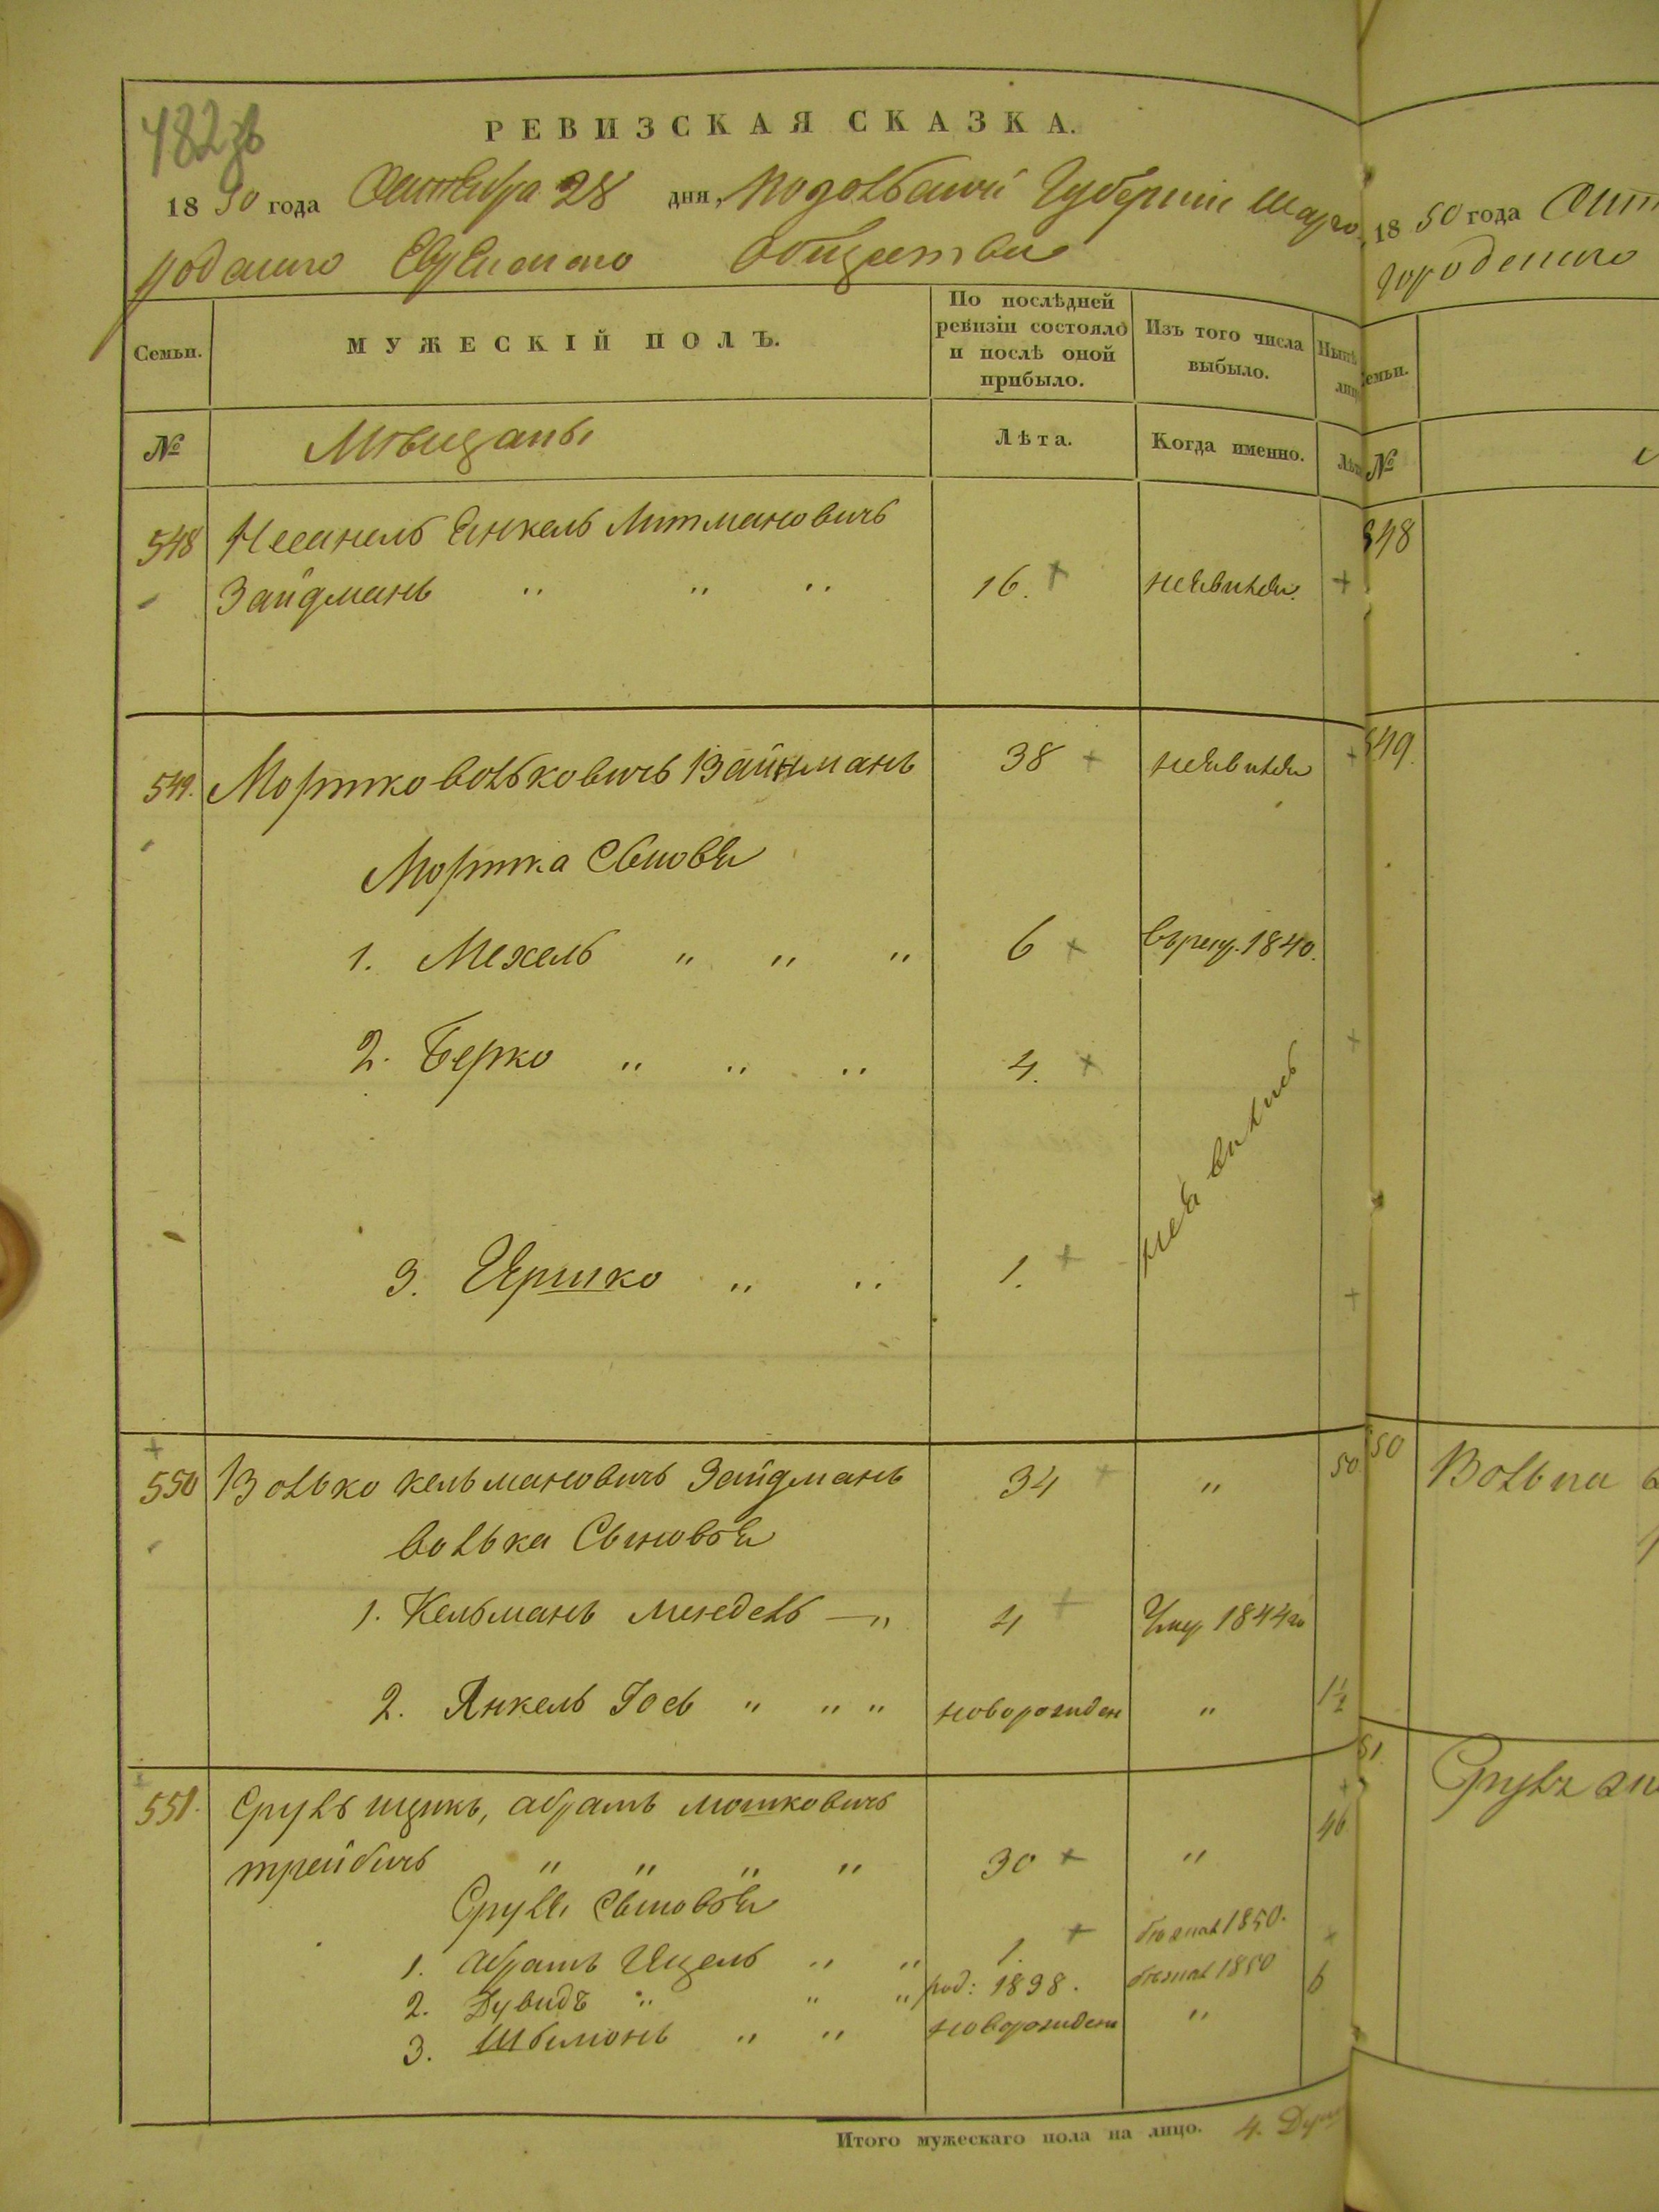 482 зв
РЕВИЗСКАЯ СКАЗКА.
1850 года Октября 28 дня, Подольской Губернии Шарго
родского Еврейского Общества
Семьи.
МУЖЕСКІЙ ПОЛЪ.
По послѣдней ревизіи состояло и послѣ оной прибыло.
Изъ того числа выбыло.
Нынѣ
лиц
№
Мѣщаны
Лѣта.
Когда именно.
Лѣт
548 Несанель Янкель Литмановичъ
Зайдманъ " " " 16. + неявился. +
549. Мортко Волькович Вайнманъ 38 + неявился +
Мортка Сыновья
1. Мехель " " " 6 + в рекр. 1840.
2. Берко " " " 4. + +
неявились
3. Гершко " " 1. + +
+
550 Волько Кельмановичъ Зайдманъ 34 + " 50
Волька Сыновья
1. Кельманъ Мендель — " 4 + Умер 1844го
2. Янкель Іосъ " " " новорожден " 1½
551. Сруль Ицикъ, Абрамъ Мошковичъ +
трейбичъ " " " " 30 + " 46
Сруля Сыновья
1. Абрамъ Ицель " " 1. + бежал 1850. +
2. Дувидъ " " " род: 1838. бежал 1850 6
3. Шымонъ " " новорожден "
Итого мужескаго пола на лицо. 4. Душ
18 50 года Окт
городского
емьи.
№
548
549.
50 Волька
51. Сруля